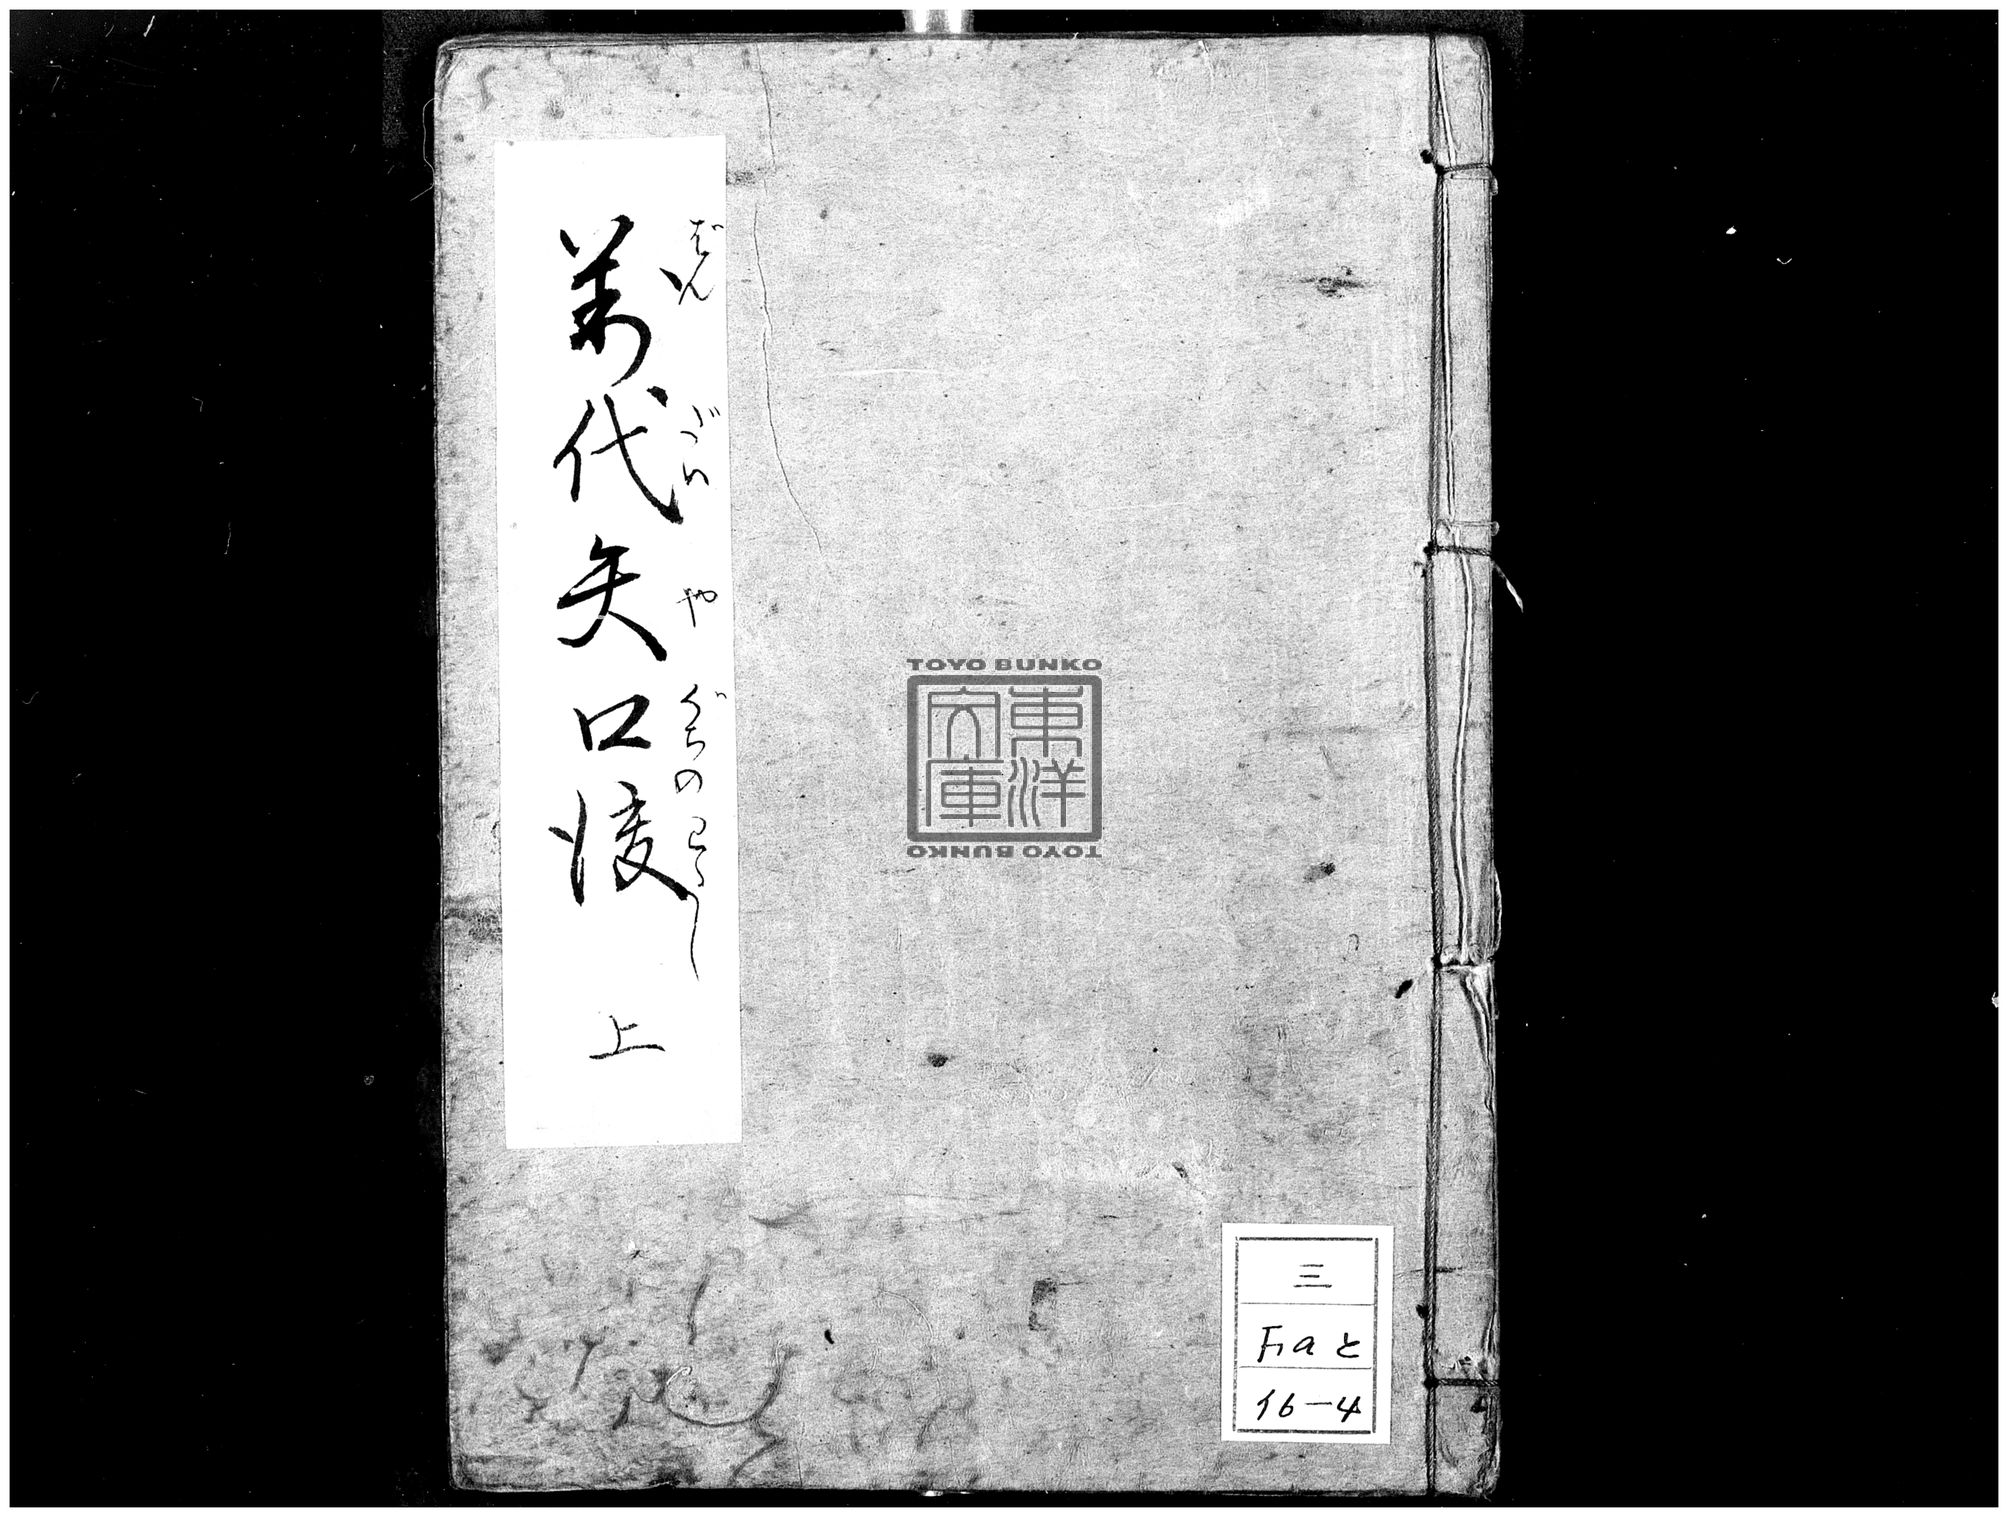 萬代矢口渡 上
ばんだいやぐちのわたし
TOYO BUNKO
東洋
文庫
TOYO BUNKO
三
Fıaと
16-4